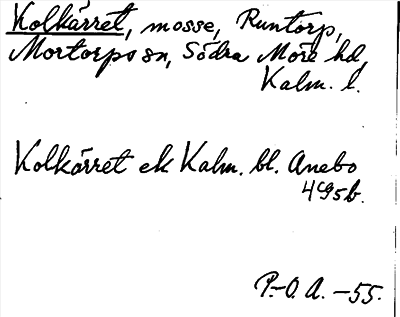 Kolkärret, mosse, Runtorp,
Mortorps sn, Södra Möre hd,
Kalm. l.
Kolkärret ek Kalm. bl. Anebo
4G95b.
P.-O. A. -55.